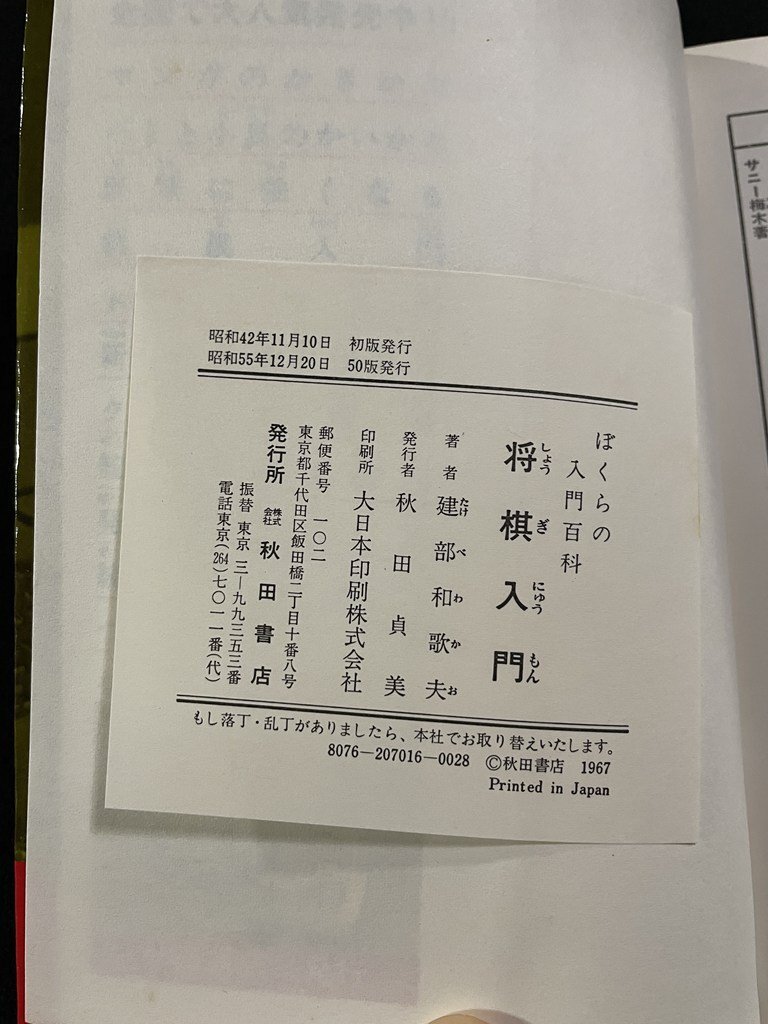 昭和42年11月10日　初版発行
昭和55年12月20日　50版発行
ぼくらの
入門百科
将棋入門
しょうぎにゅうもん
著者　建部和歌夫
たけべわかお
発行者　秋田貞美
印刷所　大日本印刷株式会社
郵便番号　一〇二
東京都千代田区飯田橋二丁目十番八号
発行所　株式会社　秋田書店
振替　東京　三—九九三五三番
電話東京(264)七〇一一番(代)
もし落丁・乱丁がありましたら、本社でお取り替えいたします。
8076—207016—0028　©秋田書店　1967
Printed in Japan
サニー梅木著